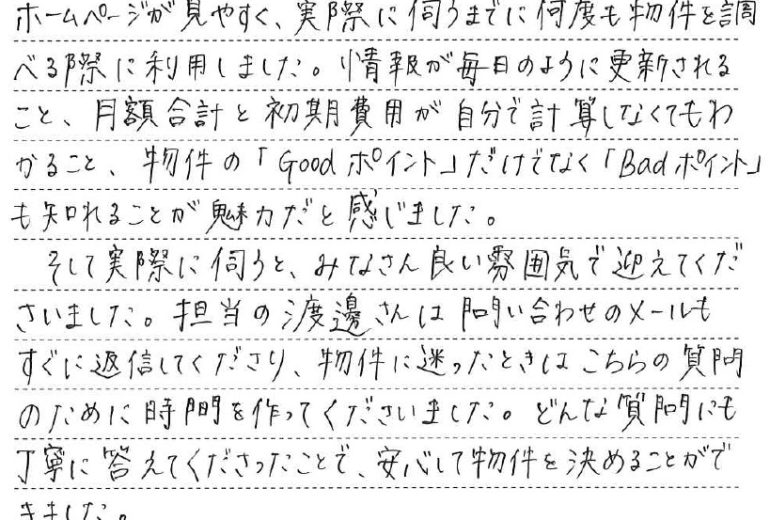 ホームページが見やすく、実際に伺うまでに何度も物件を調
べる際に利用しました。情報が毎日のように更新される
こと、月額合計と初期費用が自分で計算しなくてもわ
かること、物件の「Goodポイント」だけでなく「Badポイント」
も知れることが魅力だと感じました。
そして実際に伺うと、みなさん良い雰囲気で迎えてくだ
さいました。担当の渡邊さんは問い合わせのメールも
すぐに返信してくださり、物件に迷ったときはこちらの質問
のために時間を作ってくださいました。どんな質問にも
丁寧に答えてくださったことで、安心して物件を決めることがで
きました。